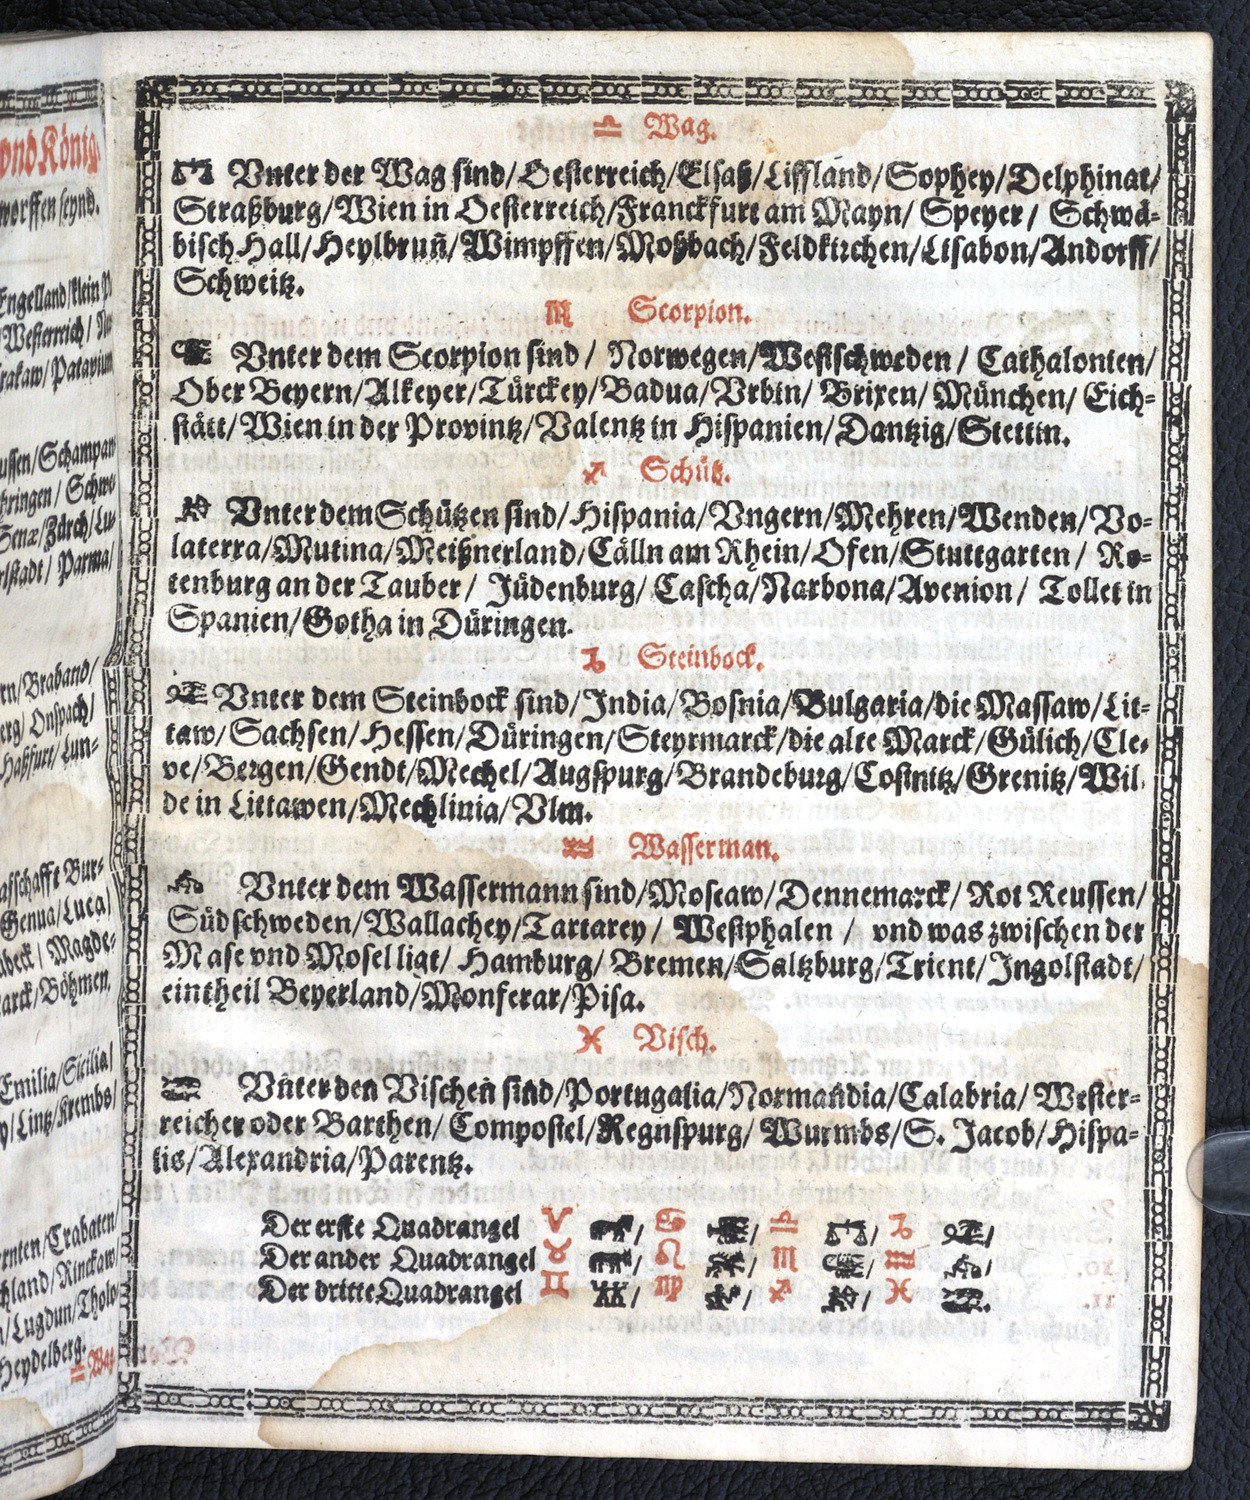 ♎ Wag.
Vnter der Wag sind/Oesterreich/Elsaß/Liffland/Sophey/Delphinat/
Straßburg/Wien in Oesterreich/Franckfurt am Mayn/ Speyer/ Schwä-
bisch Hall/Heylbruñ/Wimpffen/Moßbach/Feldkirchen/Lisabon/Andorff/
Schweitz.
♏ Scorpion.
Vnter dem Scorpion sind/ Norwegen/Westschweden/ Cathalonien/
Ober Beyern/Alkeyer/Türckey/Badua/Vrbin/ Brixen/München/ Eich-
stätt/Wien in der Provintz/Valentz in Hispanien/Dantzig/Stettin.
♐ Schütz.
Vnter dem Schützen sind/Hispania/Vngern/Mehren/Wenden/Vo-
laterra/Mutina/Meißnerland/Cälln am Rhein/Ofen/Stuttgarten/ Ro-
tenburg an der Tauber/ Jüdenburg/ Cascha/Narbona/Avenion/ Tollet in
Spanien/Gotha in Düringen.
♑ Steinbock.
Vnter dem Steinbock sind/India/Bosnia/Bulgaria/die Massaw/Lit-
taw/Sachsen/Hessen/Düringen/Steyrmarck/die alte Marck/Gülich/Cle-
ve/Bergen/Gendt/Mechel/Augspurg/Brandeburg/Costnitz/Grenitz/Wil-
de in Littawen/Mechlinia/Vlm.
♒ Wasserman.
Vnter dem Wassermann sind/Moscaw/Dennemarck/ Rot Reussen/
Südschweden/Wallachey/Tartarey/ Westphalen/ vnd was zwischen der
Mase vnd Mosel ligt/ Hamburg/ Bremen/Saltzburg/Trient/Ingolstadt/
ein theil Beyerland/Monferar/Pisa.
♓ Visch.
Vnter den Vischen sind/Portugalia/Normandia/Calabria/ Wester-
reicher oder Barthen/ Compostel/Regnspurg/ Wurmbs/S. Jacob/Hispa-
lis/Alexandria/Parentz.
Der erste Quadrangel ♈ / ♋ / ♎ / ♑ /
Der ander Quadrangel ♉ / ♌ / ♏ / ♒ /
Der dritte Quadrangel ♊ / ♍ / ♐ / ♓ .
vnd König
worffen seynd.
Engelland/klein
Westerreich/
/Patavium
ussen/Schampan
Zürch/
Parma/
Braband/
Onspach/
Haßfurt/Lun-
Genua/Luca/
Magde-
Böhmen.
Emilia/Sicilia/
Lintz/Krembs/
Crabaten/
Rinckaw/
Lugdun/
Heydelberg.
♎ Wag